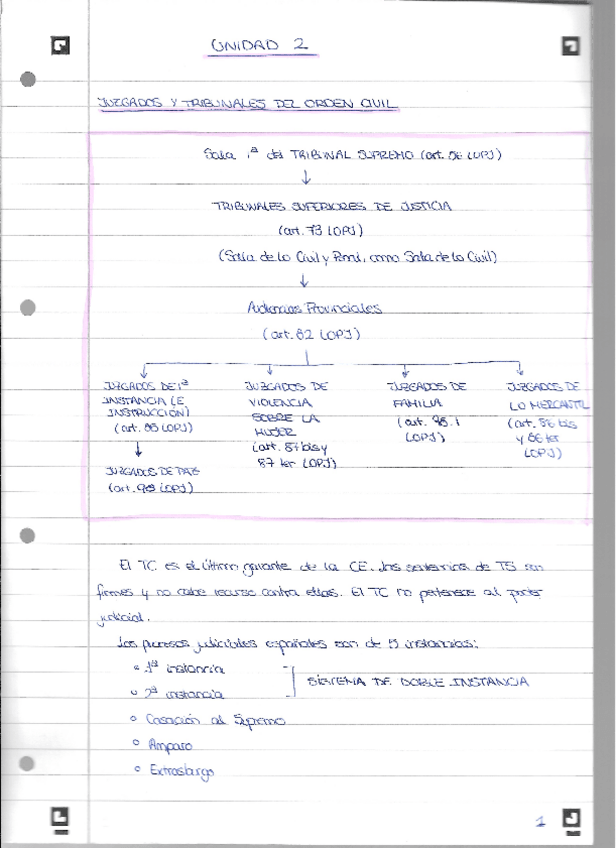 UNIDAD 2
JUZGADOS Y TRIBUNALES DEL ORDEN CIVIL
Sala 1ª del TRIBUNAL SUPREMO (art. 56 LOPJ)
TRIBUNALES SUPERIORES DE JUSTICIA
(art. 73 LOPJ)
(Sala de lo Civil y Penal, como Sala de lo Civil)
Audiencias Provinciales
(art. 82 LOPJ)
JUZGADOS DE 1ª
INSTANCIA (E
INSTRUCCIÓN)
(art. 85 LOPJ)
JUZGADOS DE PAZ
(art. LOPJ)
JUZGADOS DE
VIOLENCIA
SOBRE LA
MUJER
(art. 87 bis y
87 ter LOPJ)
JUZGADOS DE
FAMILIA
(art. 98.1
LOPJ)
JUZGADOS DE
LO MERCANTIL
(art. 86 bis
y 86 ter
LOPJ)
El TC es el último garante de la CE. Las sentencias de TS son
firmes y no cabe recurso contra ellas. El TC no pertenece al poder
judicial.
Los procesos judiciales españoles son de 5 instancias:
1ª instancia
2ª instancia
SISTEMA DE DOBLE INSTANCIA
Casación al Supremo
Amparo
Estrasburgo
1